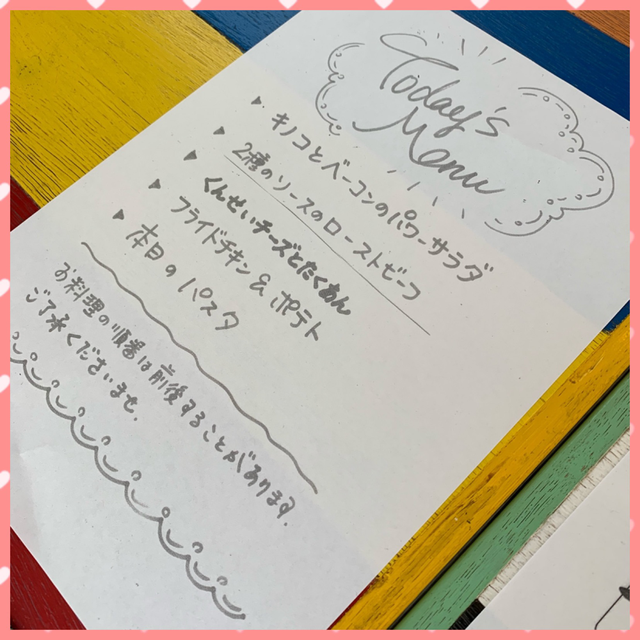 Today's
Menu
▸ キノコとベーコンのパワーサラダ
▸ 2種のソースのローストビーフ
▸ くんせいチーズとたくあん
▸ フライドチキン & ポテト
▸ 本日のパスタ
お料理の順番は前後することがあります.
ご了承くださいませ.